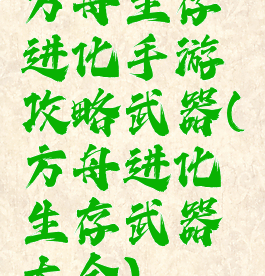 方舟生存
进化手游
攻略武器(
方舟进化
生存武器
大全)